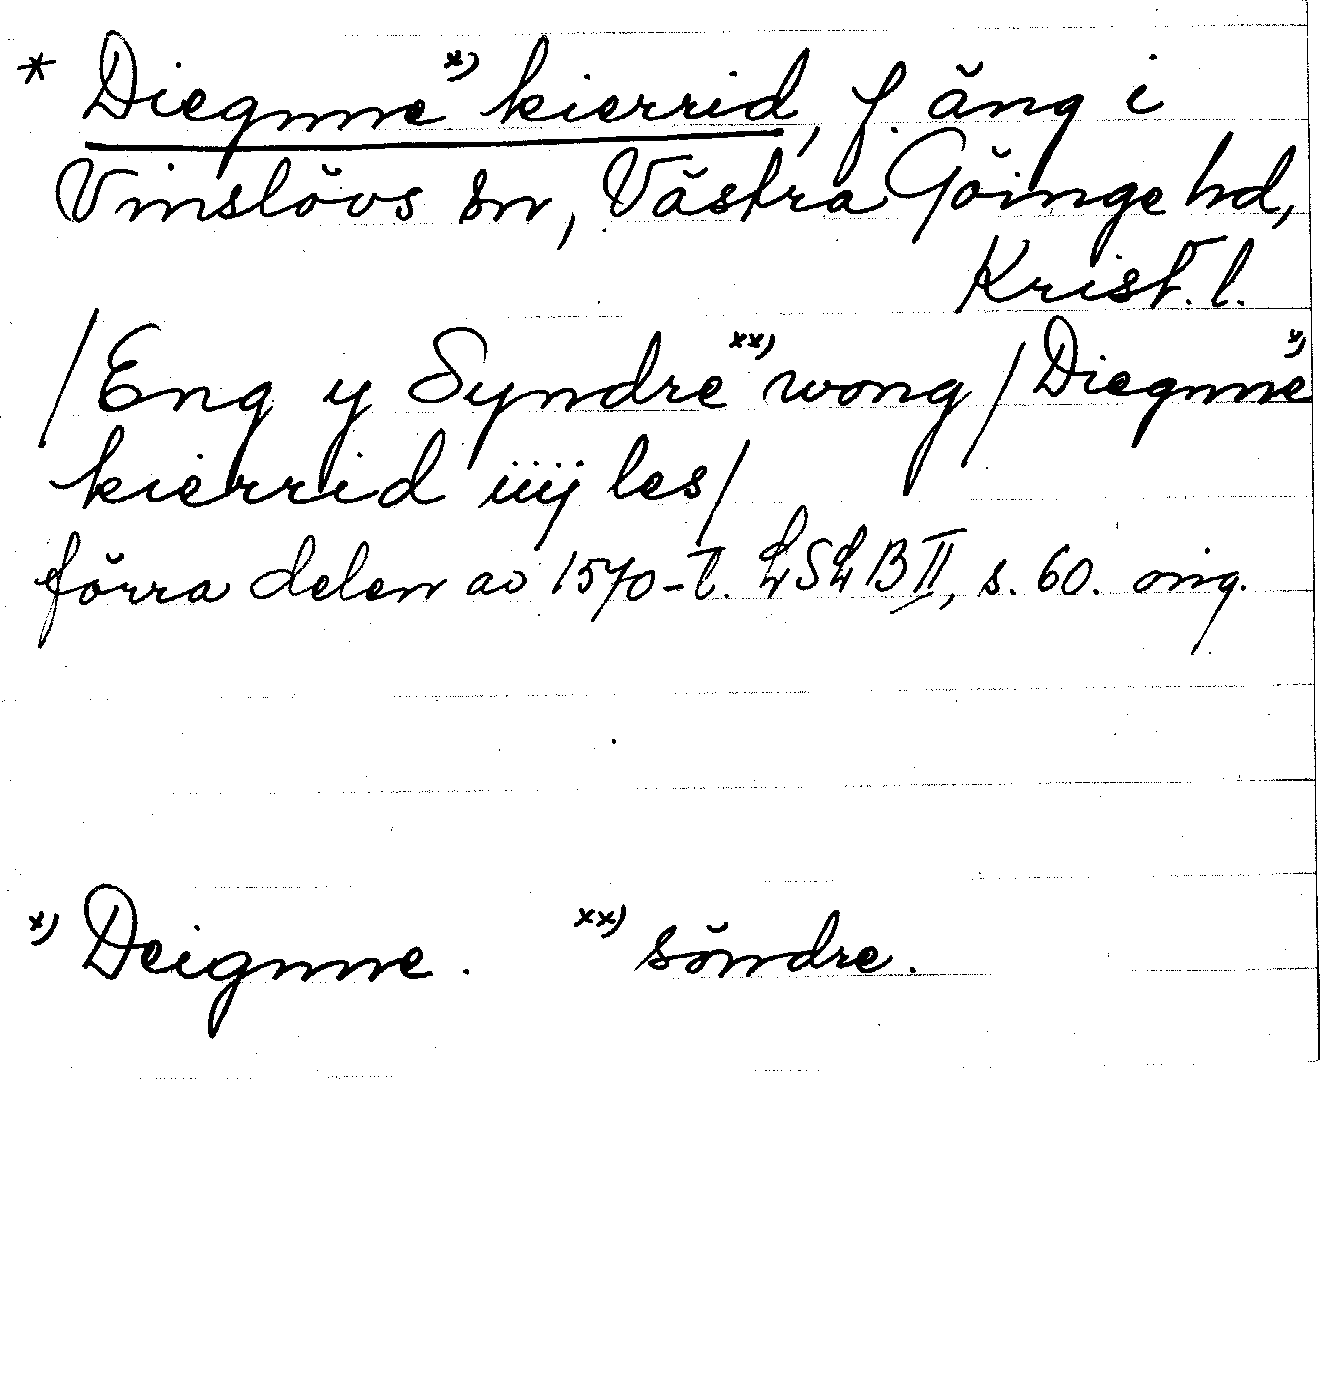 * Diegnne x) kierrid, f. äng i
Vinslövs sn, Västra Göinge hd,
Krist. l.
/Eng y Syndre xx) wong / Diegnne x)
kierrid iiij les/
förra delen av 1570-t. LSLB II, s. 60. orig.
x) Deignne. xx) söndre.